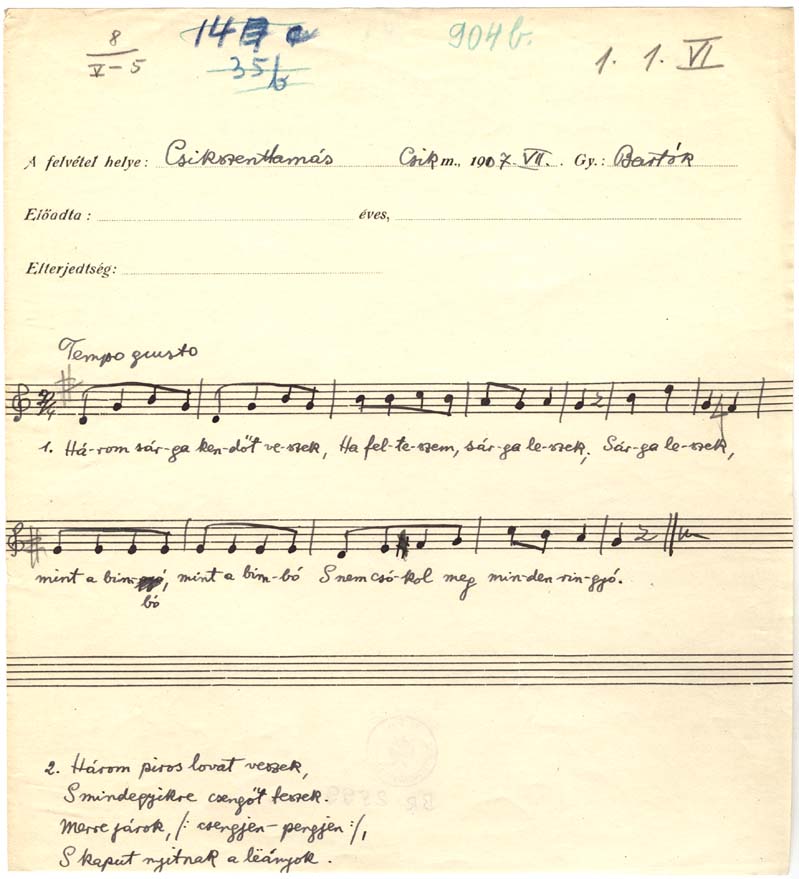 8
V-5
35/b
904b.
1. 1. VI
A felvétel helye: Csikszenttamás Csik m., 1907. VII. Gy.: Bartók
Előadta: éves,
Elterjedtség:
Tempo giusto
1. Há-rom sár-ga ken-dőt ve-szek, Ha fel-te-szem, sár-ga le-szek, Sár-ga le-szek,
mint a bim-bó, mint a bim-bó S nem csó-kol meg min-den rin-gyó.
2. Három piros lovat veszek,
S mindegyikre csengőt teszek.
Merre járok, /: csengjen-pengjen :/,
S kaput nyitnak a lëányok.